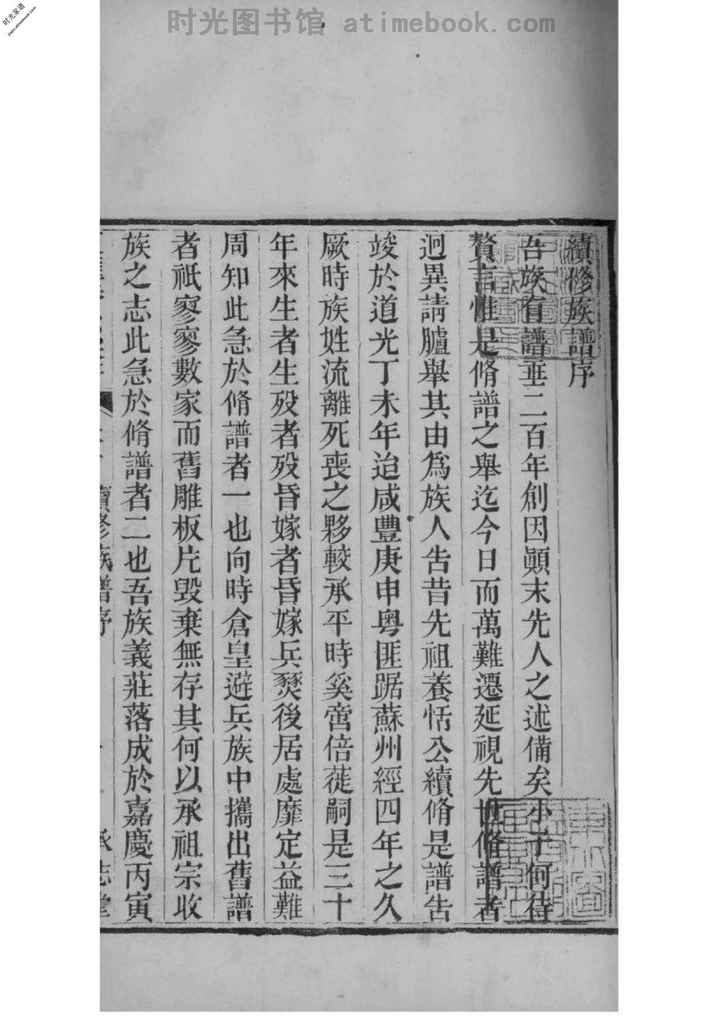 时光图书馆 atimebook.com
时光家谱
www.atimebook.com
續修族譜序
吾族有譜垂二百年創因顚末先人之述備矣小子何待
贅言惟是脩譜之舉迄今日而萬難遷延視先世脩譜者
迥異請臚舉其由爲族人告昔先祖養恬公續脩是譜告
竣於道光丁未年迨咸豐庚申粤匪踞蘇州經四年之久
厥時族姓流離死喪之夥較承平時奚啻倍蓰嗣是三十
年來生者生殁者殁昏嫁者昏嫁兵燹後居處靡定益難
周知此急於脩譜者一也向時倉皇避兵族中攜出舊譜
者祇寥寥數家而舊雕板片毀棄無存其何以承祖宗收
族之志此急於脩譜者二也吾族義莊落成於嘉慶丙寅
續修族譜序
承志堂